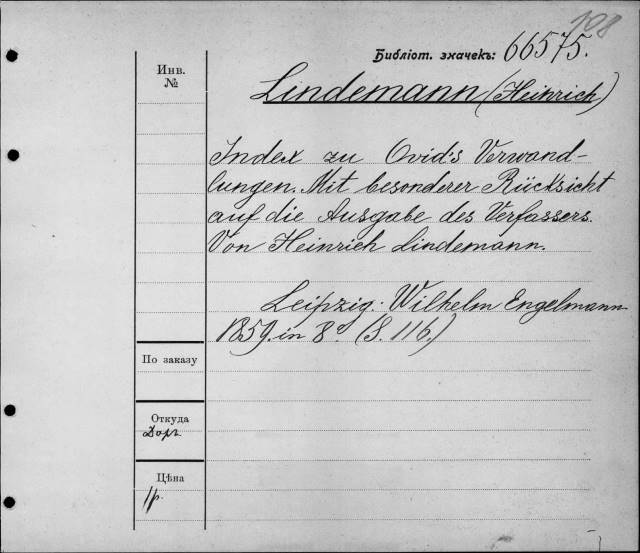 108
Библіот. значекъ: 66575.
Инв.
№
Lindemann (Heinrich)
Index zu Ovid's Verwand-
lungen. Mit besonderer Rücksicht
auf die Ausgabe des Verfassers.
Von Heinrich Lindemann.
Leipzig. Wilhelm Engelmann
1859. in 8° (S. 116.)
По заказу
Откуда
Цѣна
1р.